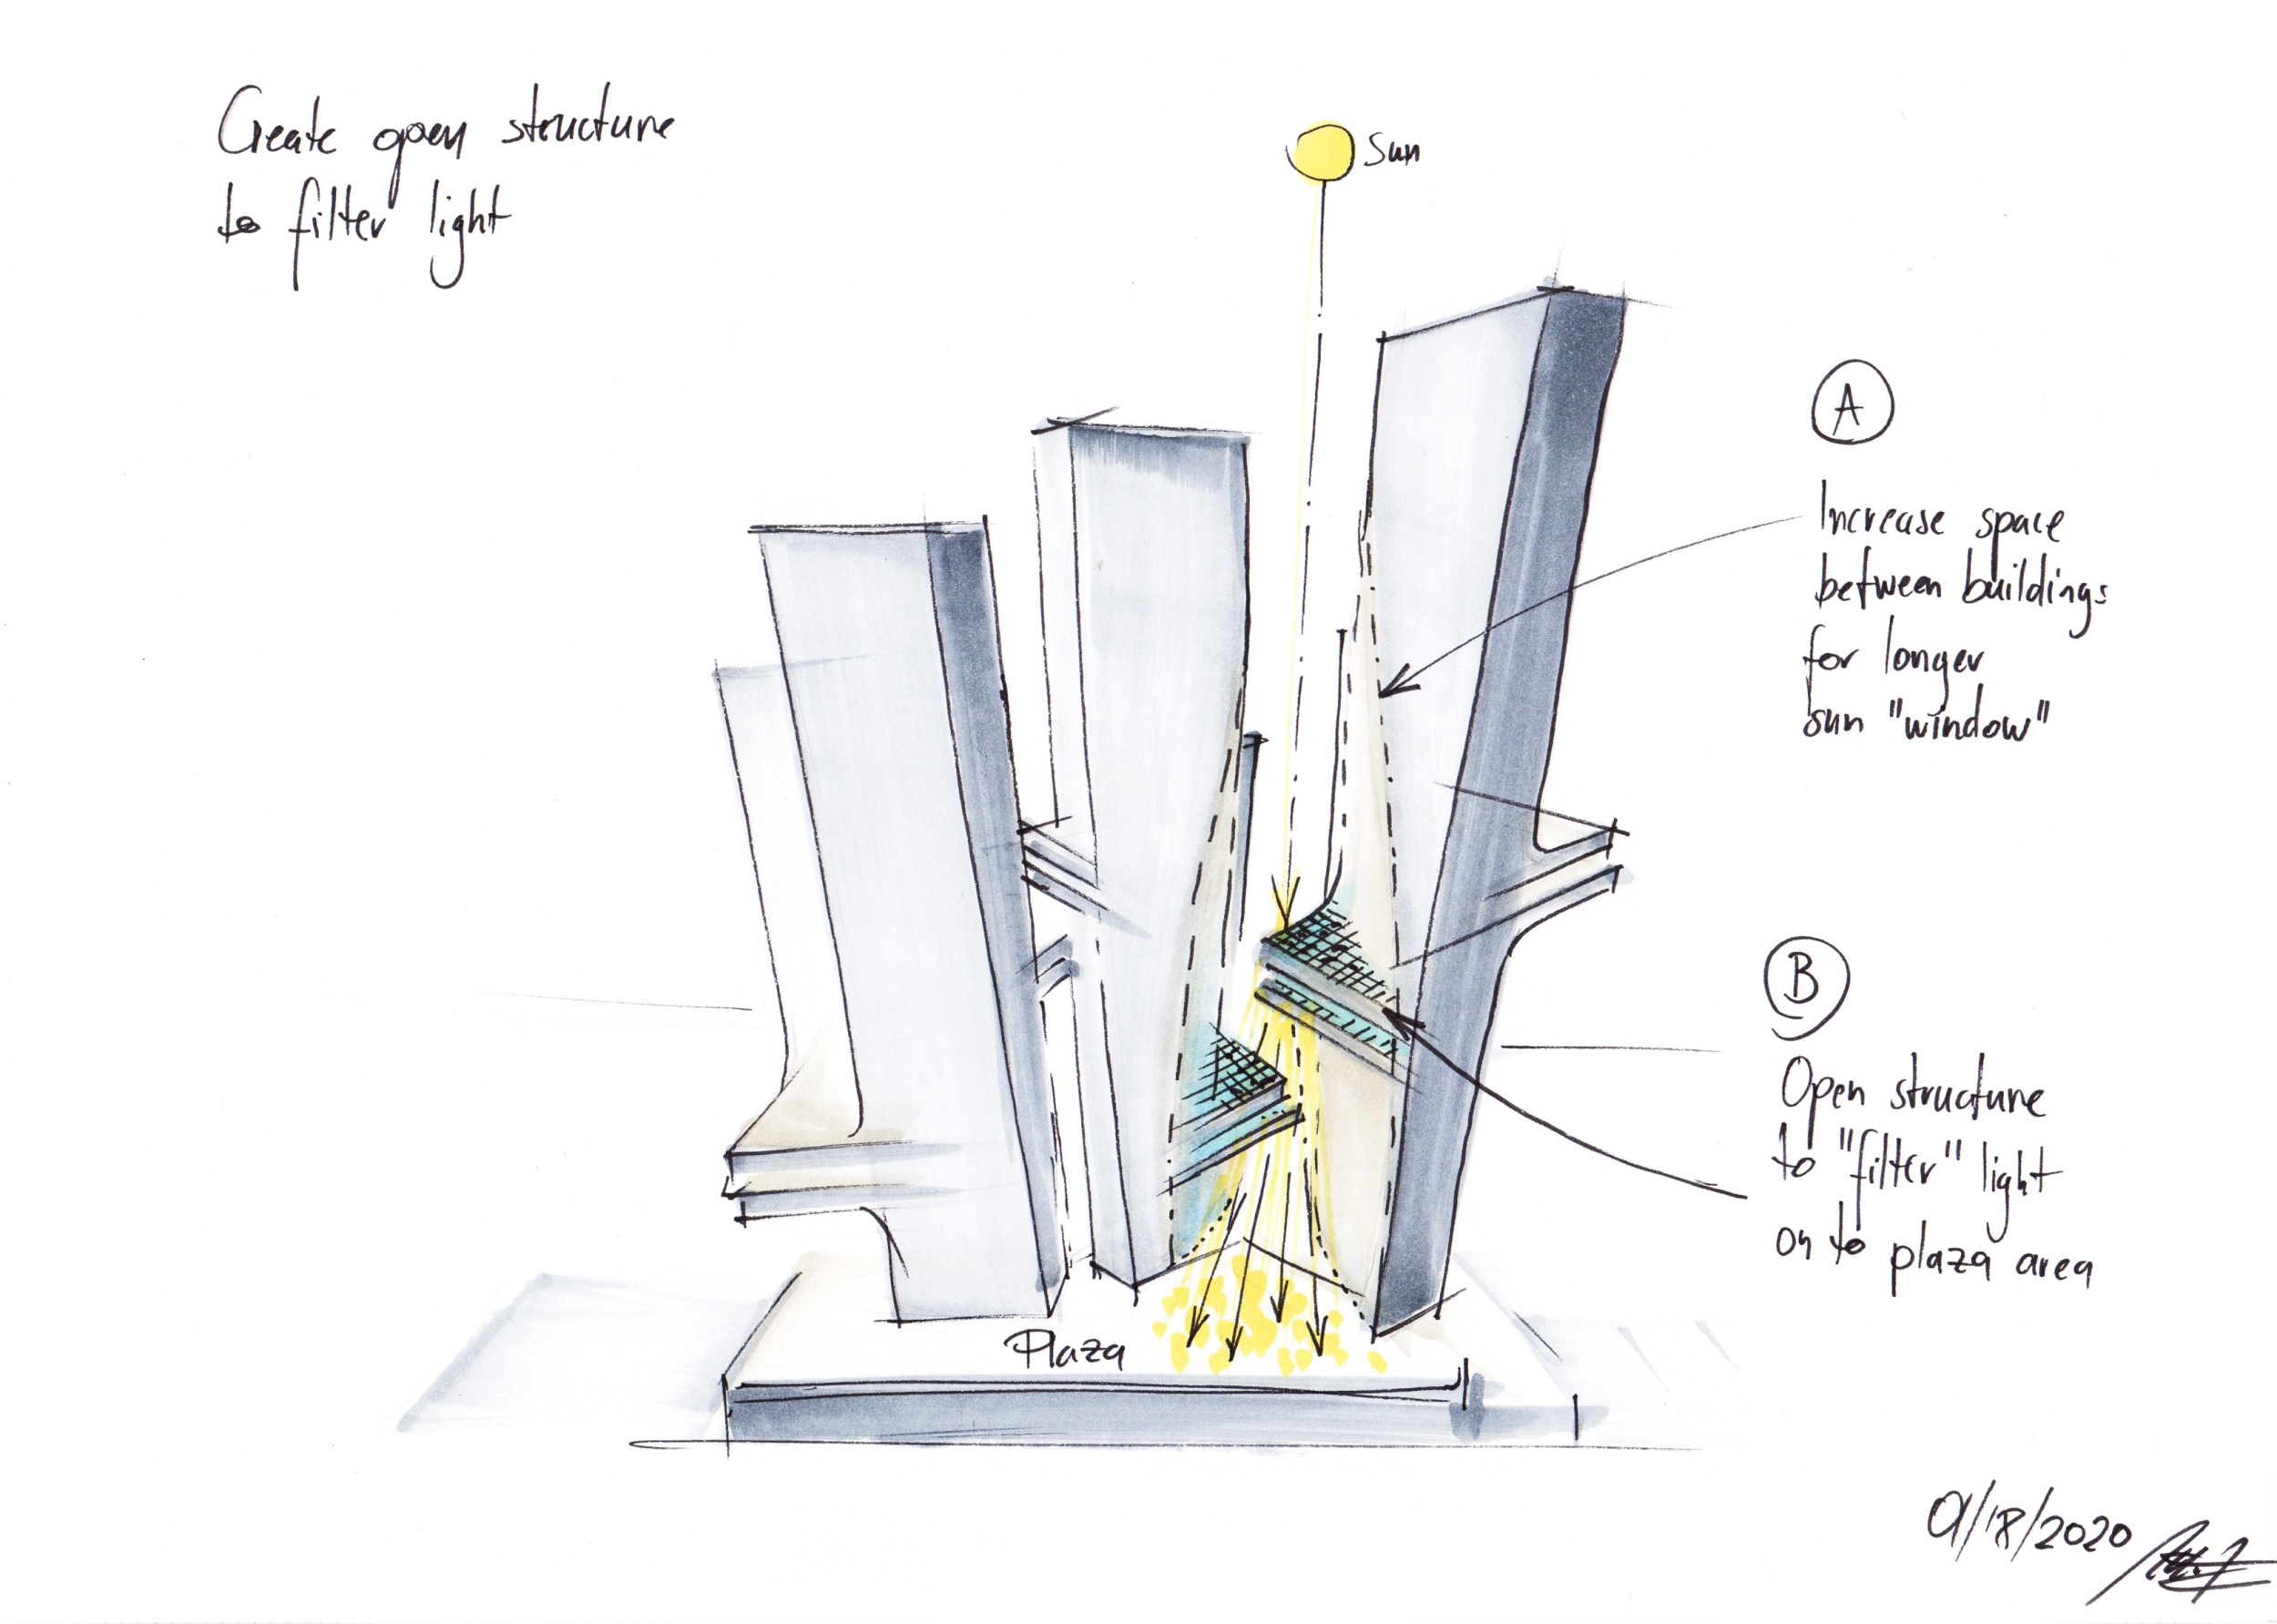 Create open structure
to filter light
Sun
A
Increase space
between buildings
for longer
sun "window"
B
Open structure
to "filter" light
on to plaza area
Plaza
01/18/2020